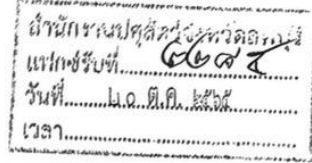 สำนักงานปศุสัตว์จังหวัดลพบุรี
แฟกซ์รับที่
วันที่ ๒๐ ต.ค. ๒๕๖๕
เวลา